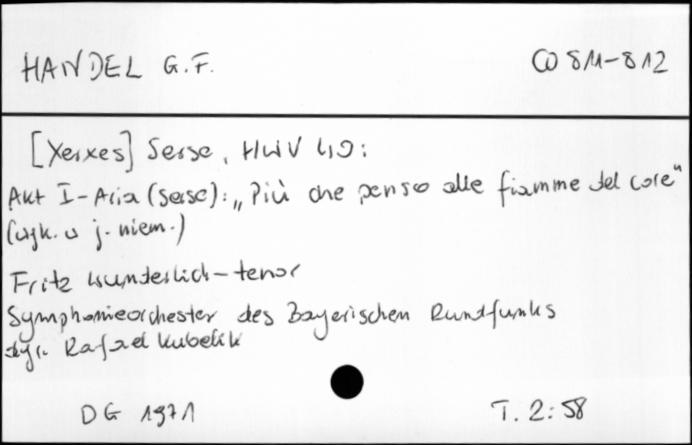 HANDEL G.F.
CD 811-812
[Xerxes] Serse, HWV 40:
Akt I - Aria (Serse): „Più che penso alle fiamme del core"
(wyk. w j. niem.)
Fritz Wunderlich - tenor
Symphonieorchester des Bayerischen Rundfunks
dyr. Rafael Kubelik
DG 1971
T. 2:58